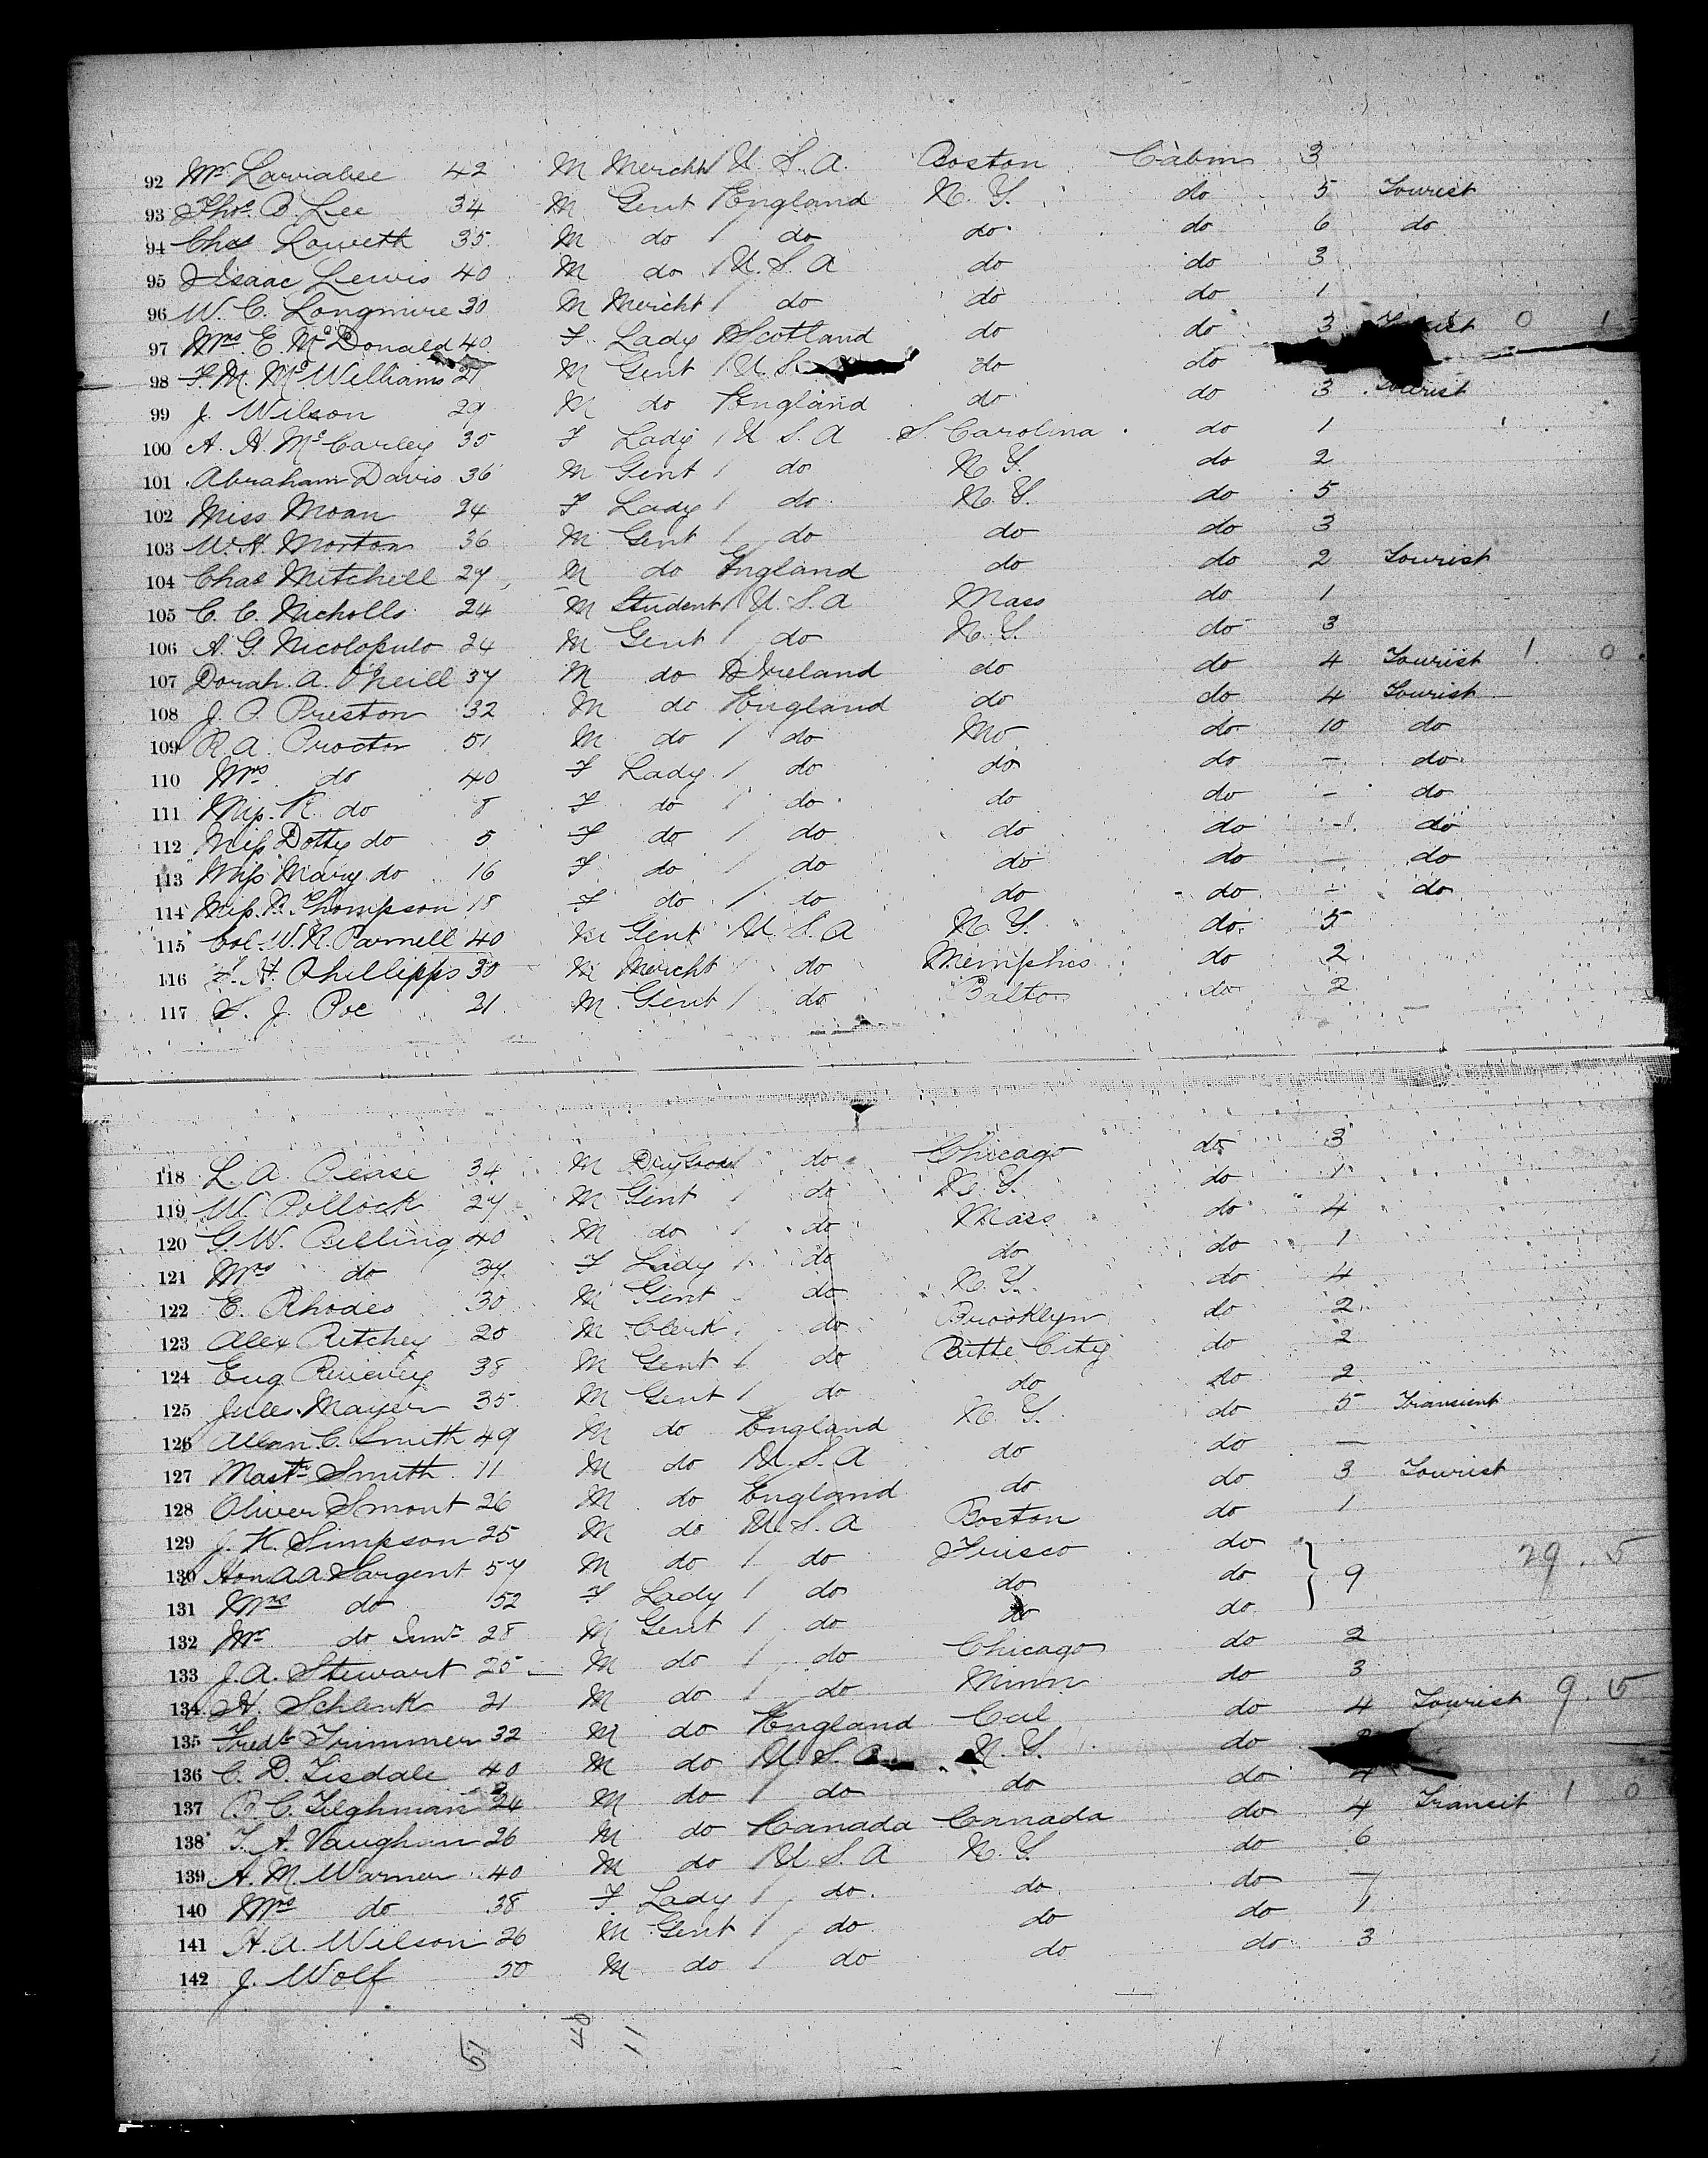 92 Mr. Larrabee 42 M Mercht U.S.A. Boston Cabin 3
93 Thos. B. Lee 34 M Gent England N.Y. do 5 Tourist
94 Chas Loweth 35 M do do do do 6 do
95 Isaac Lewis 40 M do U.S.A do do 3
96 W. C. Longmire 30 M Mercht do do do 1
97 Mrs. E. McDonald 40 F Lady Scotland do do 3 0 1
98 F. M. McWilliams 21 M Gent U.S. do do
99 J. Wilson 29 M do England do do 3 Tourist
100 A. H McCarley 35 F Lady U S. A S. Carolina do 1
101 Abraham Davis 36 M Gent do N.Y. do 2
102 Miss Moan 24 F Lady do N.Y. do 5
103 W. H. Morton 36 M Gent do do do 3
104 Chas Mitchell 27 M do England do do 2 Tourist
105 C. C. Nicholls 24 M Student U.S.A Mass do 1
106 A. G. Nicolopulo 24 M Gent do N.Y. do 3
107 Dorah. A. O'Neill 37 M do Ireland do do 4 Tourist 1 0
108 J. P. Preston 32 M do England do do 4 Tourist
109 R. A. Proctor 51 M do do Mo do 10 do
110 Mrs. do 40 F Lady do do do — do
111 Miss. K. do 8 F do do do do - do
112 Miss Dotty do 5 F do do do do - do
113 Miss Mary do 16 F do do do do — do
114 Miss. Thompson 18 F do do do do - do
115 Col. W. R. Parnell 40 M Gent U.S.A N.Y. do 5
116 H. Phillipps 30 M Mercht do Memphis do 2
117 S. J. Poe 21 M Gent do Balto do 2
118 L. A. Pease 34 M Dry Goods do Chicago do 3
119 W. Pollock 27 M Gent do N.Y. do 1
120 G. W. Pilling 40 M do do Mass do 4
121 Mrs do 37 F Lady do do do 1
122 E. Rhodes 30 M Gent do N.Y. do 4
123 Alex Ritchey 20 M Clerk do Brooklyn do 2
124 Eug 38 M Gent do Butte City do 2
125 Jules. Mayer 35 M Gent do do do 2
126 Allan. C. Smith 49 M do England N.Y. do 5 Transient
127 Mastr Smith 11 M do U.S.A do do —
128 Oliver Smont 26 M do England do do 3 Tourist
129 J. K. Simpson 25 M do U.S.A Boston do 1
130 Hon A A Sargent 57 M do do Frisco do 29. 5
131 Mrs do 52 F Lady do do do } 9
132 Mr do Junr 28 M Gent do do do
133 J. A. Stewart 25 M do do Chicago do 2
134. H. Schlenk 21 M do do Minn do 3
135 Fredk Trimmer 32 M do England Cal do 4 Tourist 9. 5
136 C. D. Tisdale 40 M do U.S.A N.Y. do
137 C. Tilghman 24 M do do do do 4
138 A. Vaughan 26 M do Canada Canada do 4 Transit 1 0
139 A. M. Warner 40 M do U.S.A N.Y. do 6
140 Mrs do 38 F Lady do do do —
141 H. A. Wilson 26 M Gent do do do 1
142 J. Wolf 50 M do do do do 3
51 40 11